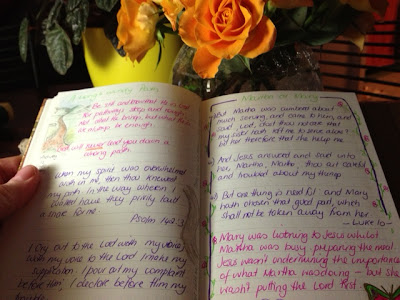 Be still
will never
when my spirit was overwhelmed
with in me, then thou knewest
my path. In the way wherein I
walked have they privily laid
a snare for me.
Psalm 142
I Cry out to the Lord with my voice,
with my voice to the Lord I make my
supplication. I pour out my complaint
before him, I declare before him my
Martha or Mary
But Martha was cumbered about
much serving, and came to him, and
said, Lord, dost thou not care that
my sister hath left me to serve alone?
bid her therefore that she help me.
And Jesus answered and said unto
her, Martha, Martha, thou art careful
and troubled about many things
But one thing is needful and Mary
hath chosen that good part, which
shall not be taken away from her.
Luke 10
Mary was listening to Jesus whilst
Martha was busy preparing the meal.
Jesus wasn't undermining the importance
of what Martha was doing - but she
wasn't putting the Lord first.